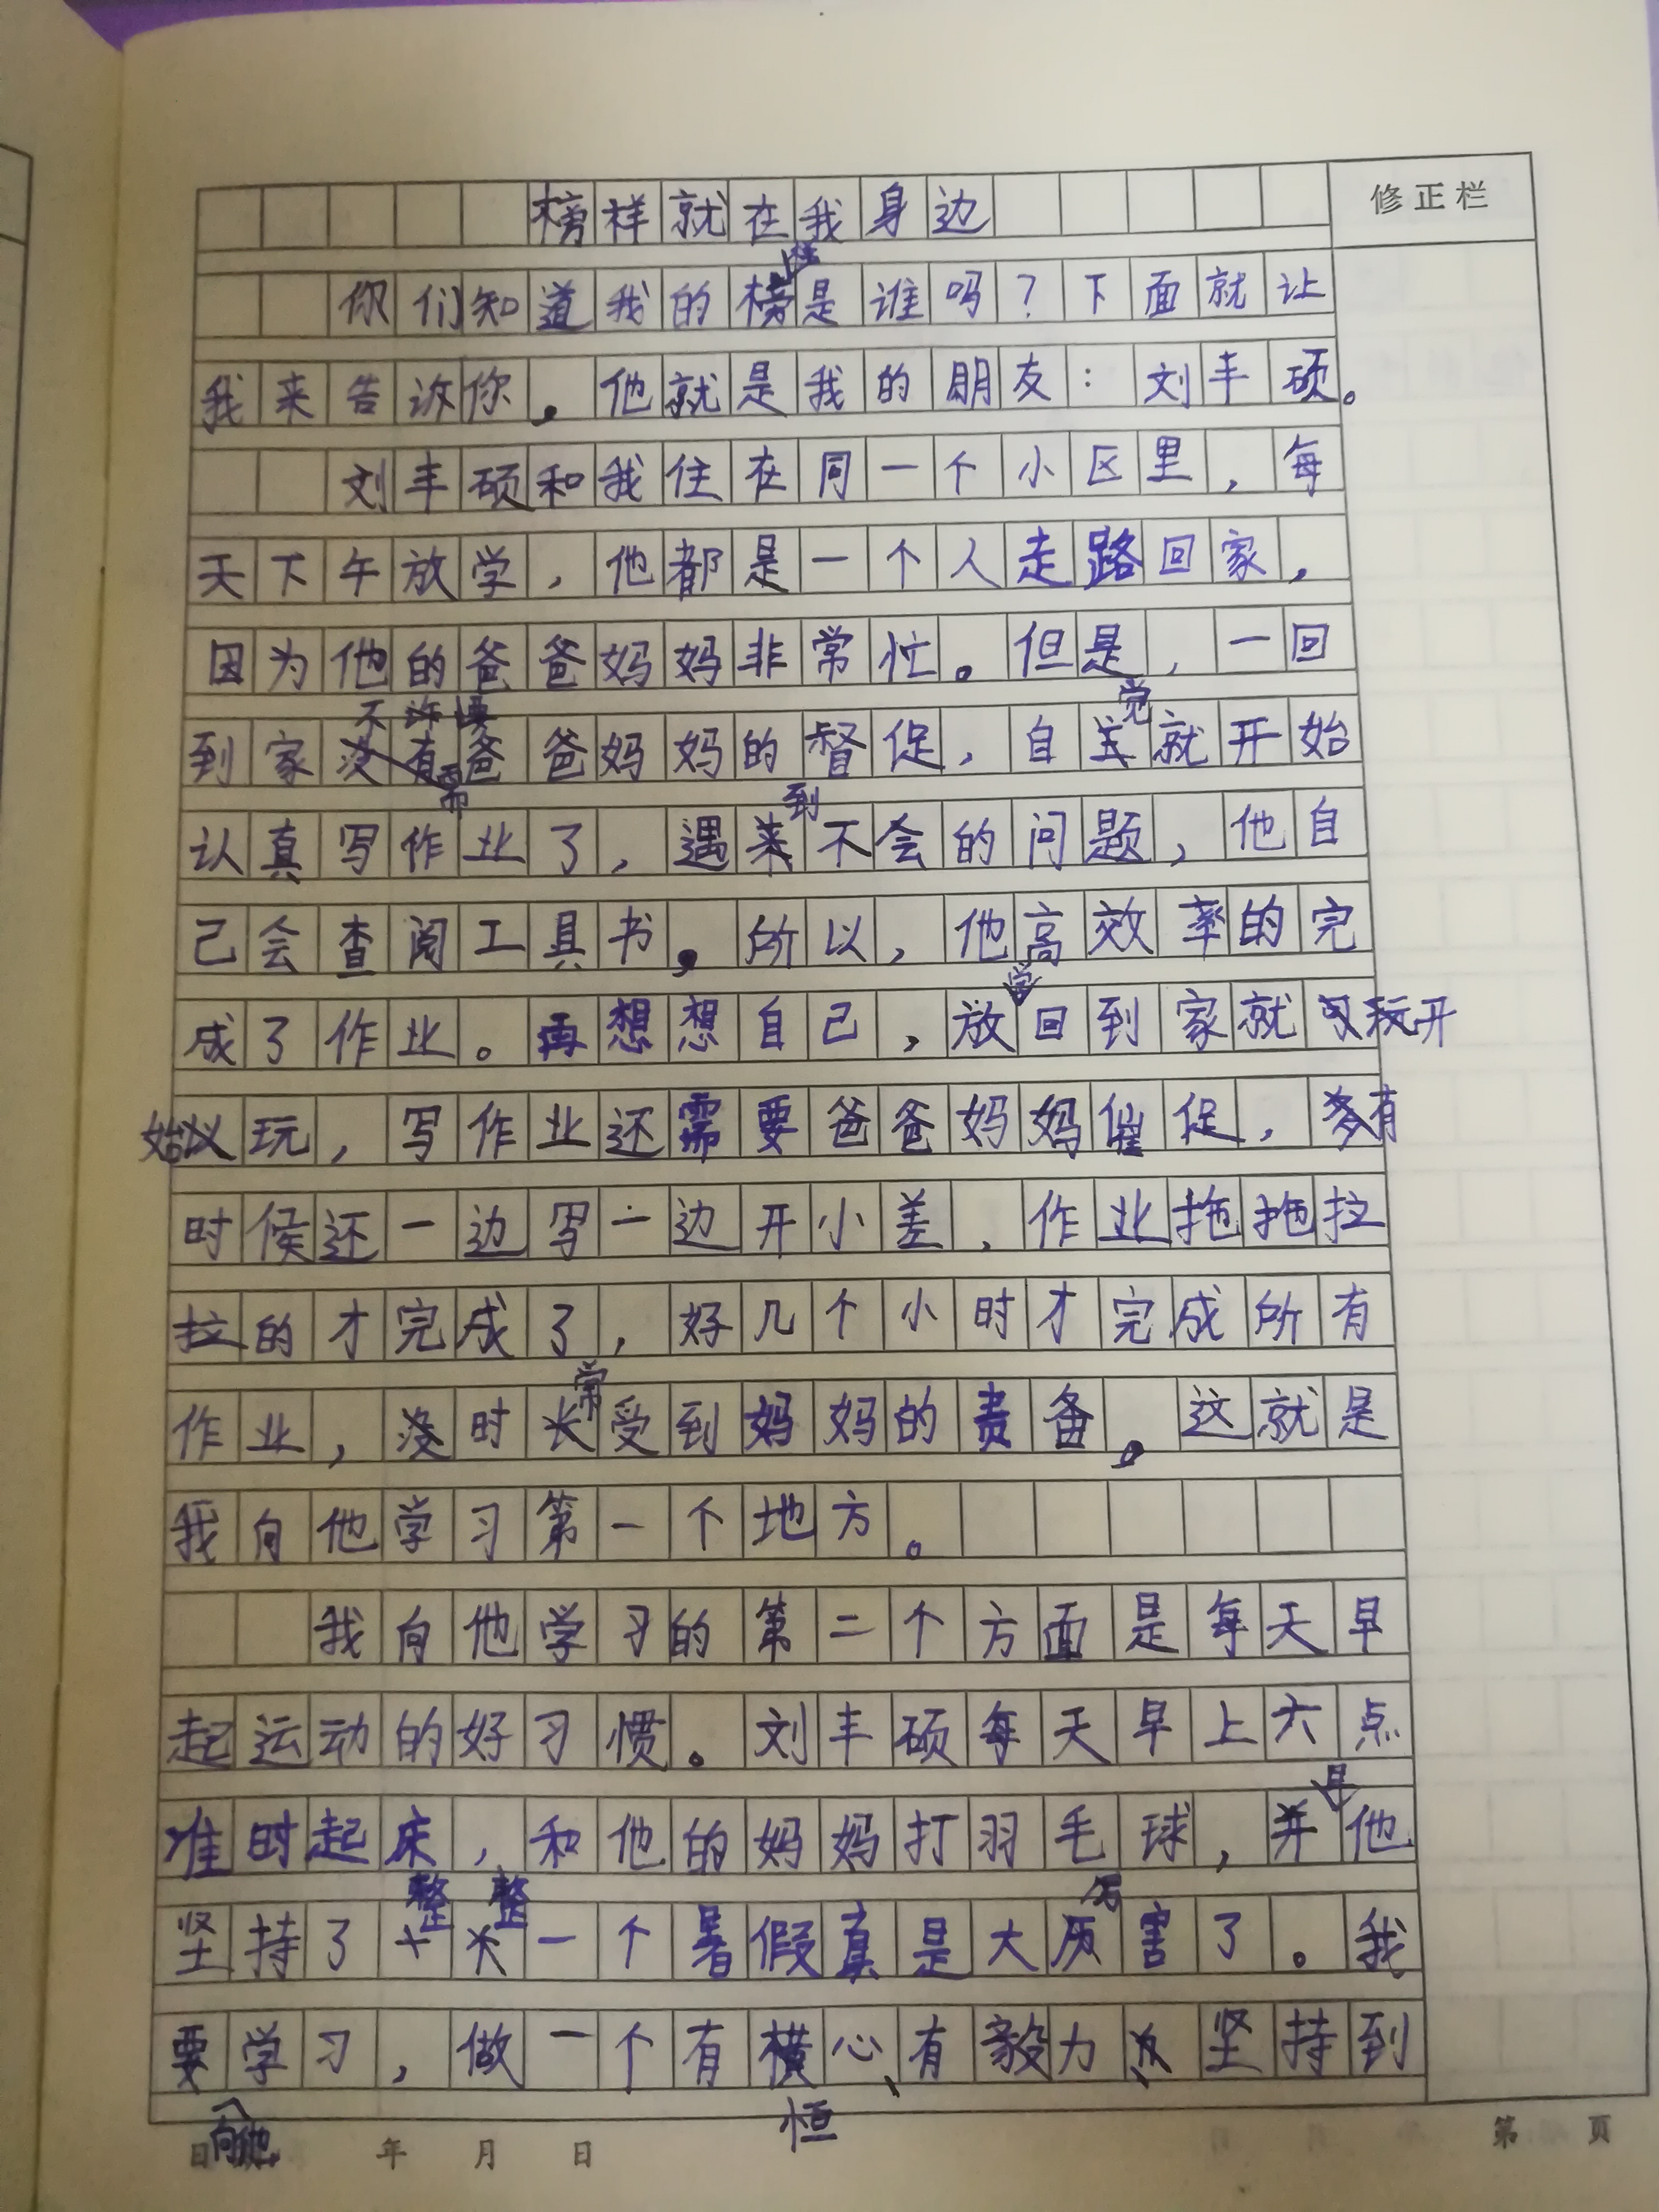 榜样就在我身边
修正栏
你们知道我的榜样是谁吗?下面就让
我来告诉你。他就是我的朋友:刘丰硕。
刘丰硕和我住在同一个小区里,每
天下午放学,他都是一个人走路回家,
因为他的爸爸妈妈非常忙。但是,一回
到家不需要爸爸妈妈的督促,自觉就开始
认真写作业了,遇到不会的问题,他自
己会查阅工具书。所以,他高效率的完
成了作业。再想想自己,放学回到家就玩开
始玩,写作业还需要爸爸妈妈催促,有
时候还一边写一边开小差,作业拖拖拉
拉的才完成了,好几个小时才完成所有
作业,没时常受到妈妈的责备。这就是
我向他学习第一个地方。
我向他学习的第二个方面是每天早
起运动的好习惯。刘丰硕每天早上六点
准时起床,和他的妈妈打羽毛球,并且他
坚持了整整一个暑假真是太厉害了。我
要向他学习,做一个有恒心、有毅力、坚持到
年 月 日
第 页